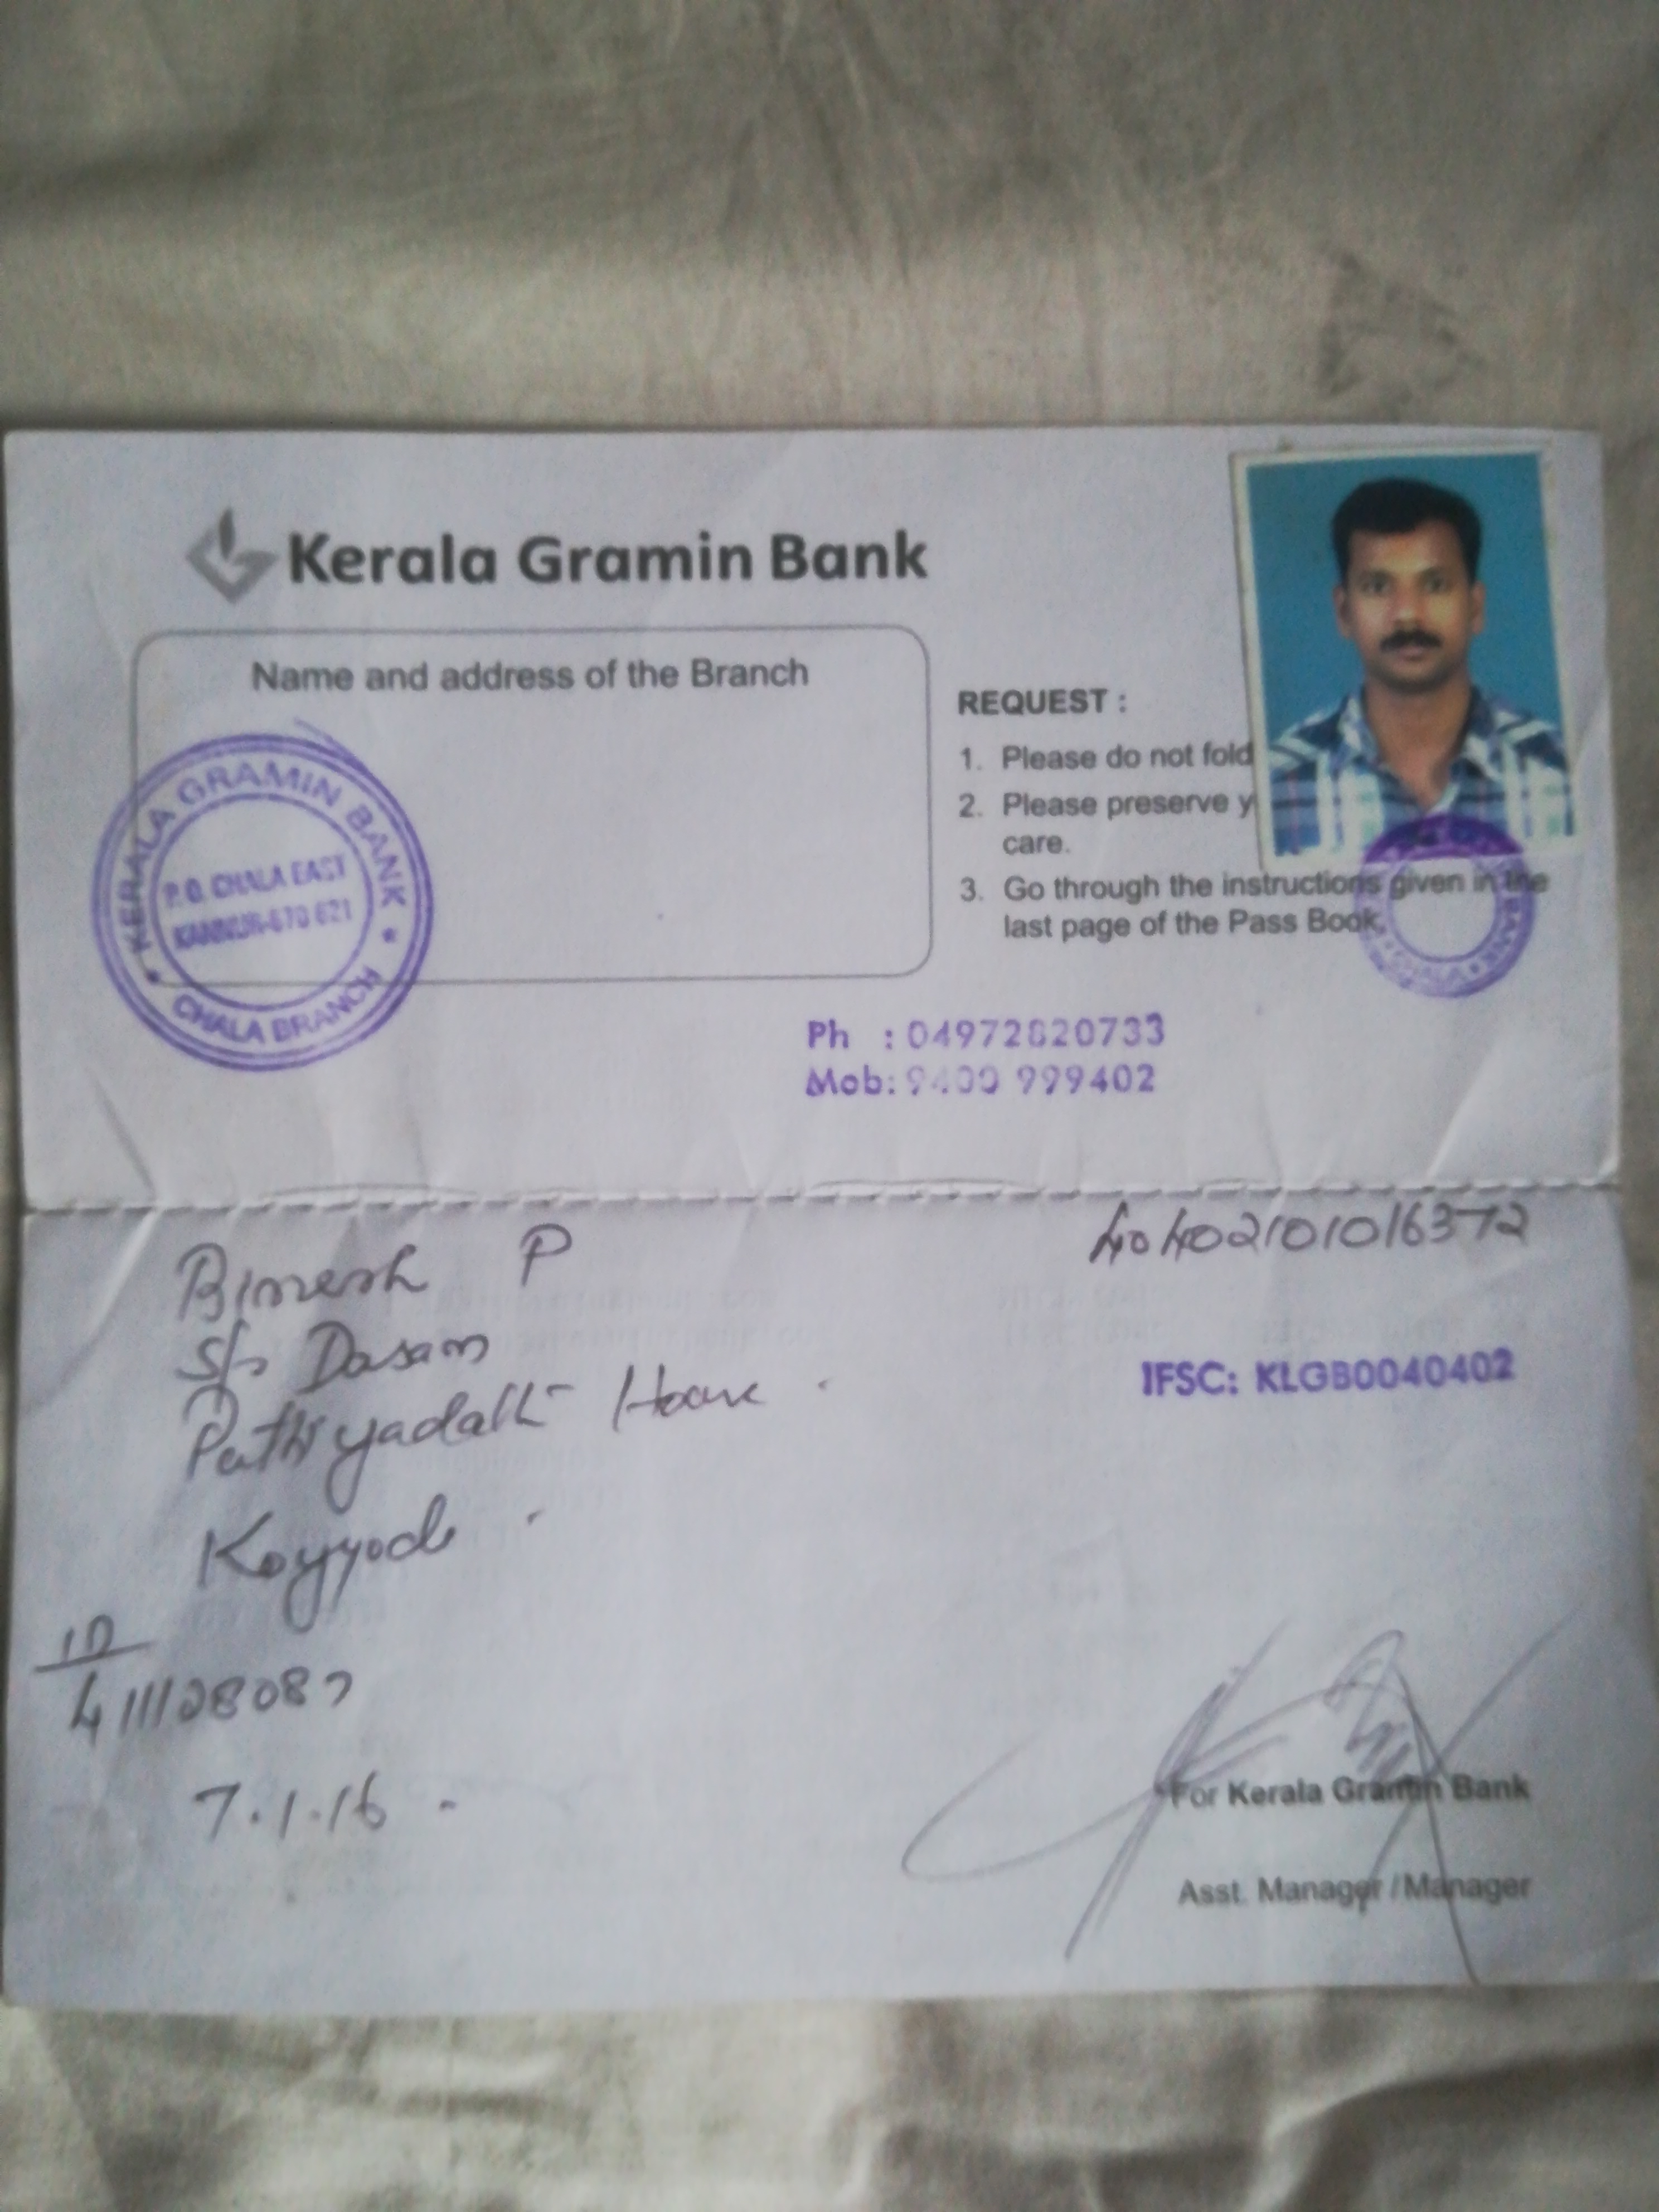 Kerala Gramin Bank
Name and address of the Branch
KERALA GRAMIN BANK
P.O. CHALA EAST
KANNUR-670 621
CHALA BRANCH
REQUEST :
1. Please do not fold
2. Please preserve y
care.
3. Go through the instructions given in the
last page of the Pass Book.
BANK
CHALA
Ph : 04972820733
Mob: 9400 999402
Bimesh P
40402101016372
S/o Dasan
IFSC: KLGB0040402
Pathiyadath House
Koyyode
ID
411128087
7.1.16
For Kerala Gramin Bank
Asst. Manager / Manager